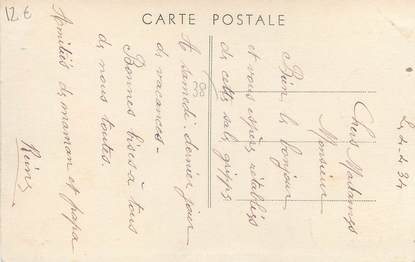 12 €
CARTE POSTALE
2-4-34
Chers Madame
Monsieur
Bien le bonjour
et vous espère rétablis
de cette sale grippe
A samedi. dernier jour
de vacances -
Bonnes bises à tous
de nous toutes.
Amitiés de maman et papa